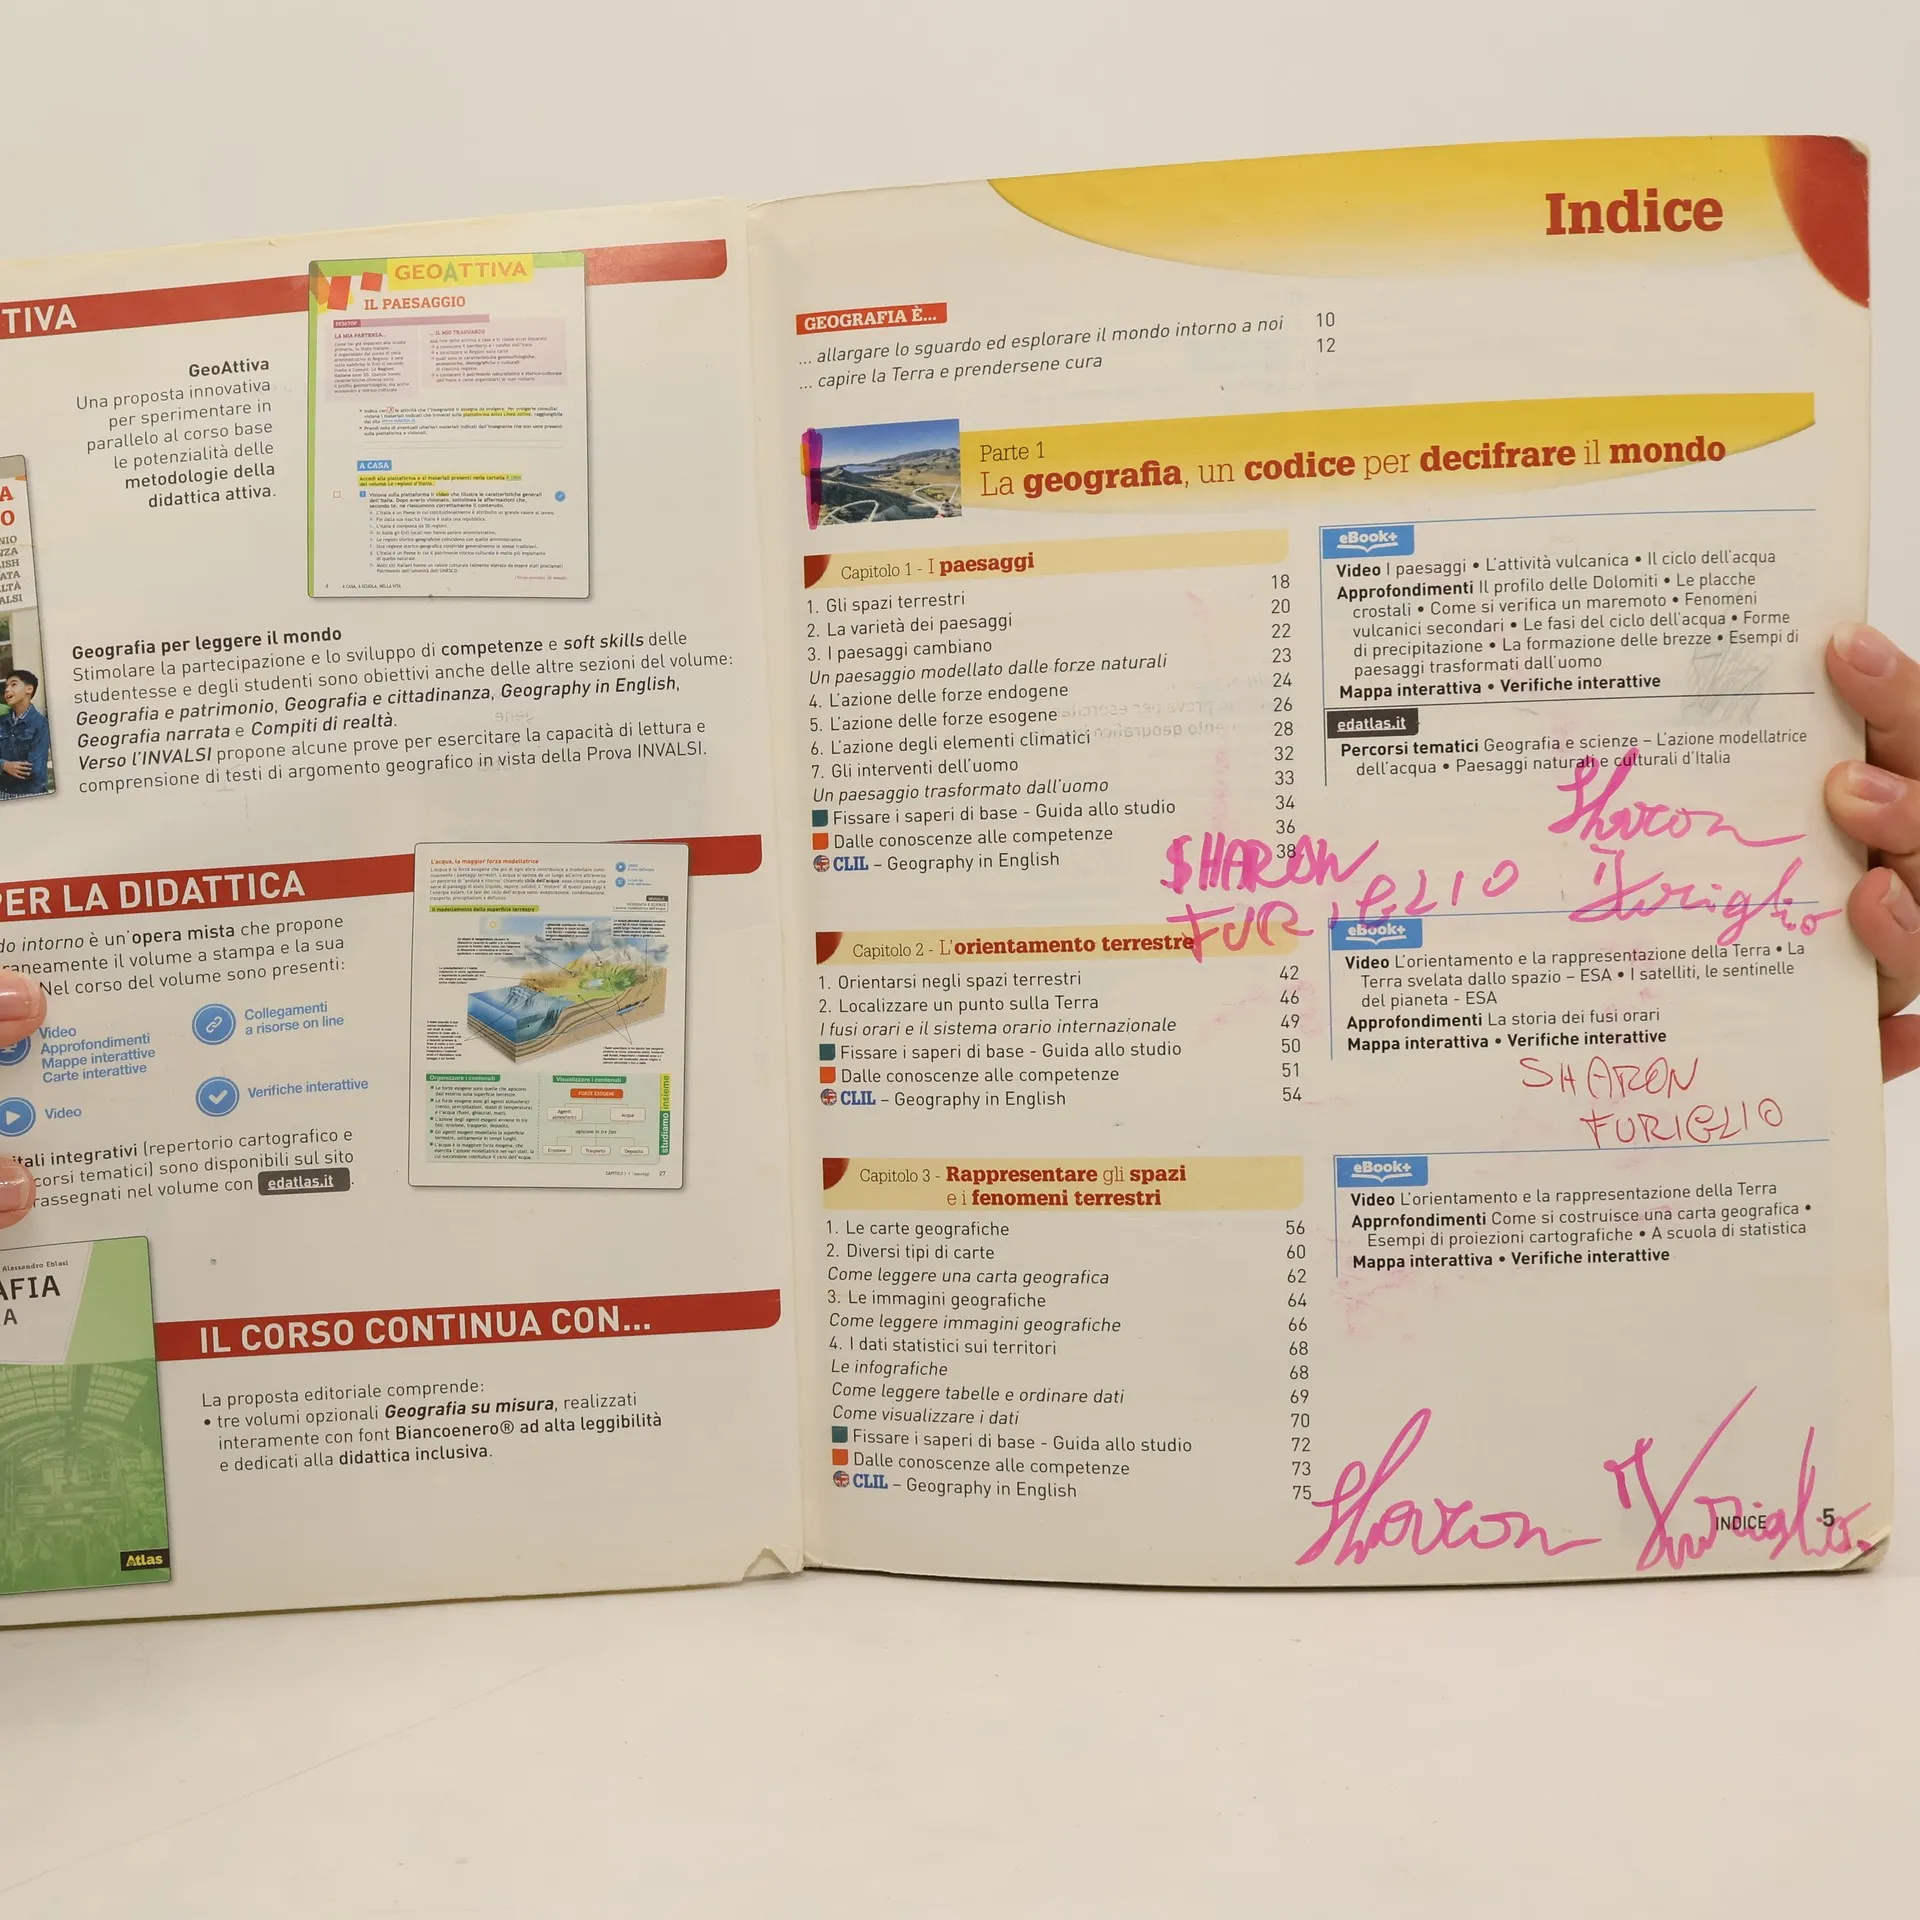 TIVA
GEOATTIVA
IL PAESAGGIO
DESKTOP
LA MIA PARTENZA...
IL MIO TRAGUARDO
A CASA
GeoAttiva
Una proposta innovativa
per sperimentare in
parallelo al corso base
le potenzialità delle
metodologie della
didattica attiva.
Geografia per leggere il mondo
Stimolare la partecipazione e lo sviluppo di competenze e soft skills delle
studentesse e degli studenti sono obiettivi anche delle altre sezioni del volume:
Geografia e patrimonio, Geografia e cittadinanza, Geography in English,
Geografia narrata e Compiti di realtà.
Verso l'INVALSI propone alcune prove per esercitare la capacità di lettura e
comprensione di testi di argomento geografico in vista della Prova INVALSI.
PER LA DIDATTICA
do intorno è un'opera mista che propone
raneamente il volume a stampa e la sua
Nel corso del volume sono presenti:
Video
Approfondimenti
Mappe interattive
Carte interattive
Collegamenti
a risorse on line
Video
Verifiche interattive
itali integrativi (repertorio cartografico e
corsi tematici) sono disponibili sul sito
rassegnati nel volume con edatlas.it.
L'acqua, la maggior forza modellatrice
Il modellamento della superficie terrestre
Organizzare i contenuti
Visualizzare i contenuti
FORZE ESOGENE
Agenti atmosferici
Acqua
Erosione
Trasporto
Deposito
studiamo insieme
27
Alessandro Eblasi
AFIA
A
Atlas
IL CORSO CONTINUA CON...
La proposta editoriale comprende:
• tre volumi opzionali Geografia su misura, realizzati
interamente con font Biancoenero® ad alta leggibilità
e dedicati alla didattica inclusiva.
Indice
GEOGRAFIA È...
... allargare lo sguardo ed esplorare il mondo intorno a noi 10
... capire la Terra e prendersene cura 12
Parte 1
La geografia, un codice per decifrare il mondo
Capitolo 1 - I paesaggi
1. Gli spazi terrestri 18
2. La varietà dei paesaggi 20
3. I paesaggi cambiano 22
Un paesaggio modellato dalle forze naturali 23
4. L'azione delle forze endogene 24
5. L'azione delle forze esogene 26
6. L'azione degli elementi climatici 28
7. Gli interventi dell'uomo 32
Un paesaggio trasformato dall'uomo 33
Fissare i saperi di base - Guida allo studio 34
Dalle conoscenze alle competenze 36
CLIL – Geography in English 38
eBook+
Video I paesaggi • L'attività vulcanica • Il ciclo dell'acqua
Approfondimenti Il profilo delle Dolomiti • Le placche
crostali • Come si verifica un maremoto • Fenomeni
vulcanici secondari • Le fasi del ciclo dell'acqua • Forme
di precipitazione • La formazione delle brezze • Esempi di
paesaggi trasformati dall'uomo
Mappa interattiva • Verifiche interattive
edatlas.it
Percorsi tematici Geografia e scienze – L'azione modellatrice
dell'acqua • Paesaggi naturali e culturali d'Italia
Sharon
Furiglio
SHARON
FURIGLIO
Capitolo 2 - L'orientamento terrestre
1. Orientarsi negli spazi terrestri 42
2. Localizzare un punto sulla Terra 46
I fusi orari e il sistema orario internazionale 49
Fissare i saperi di base - Guida allo studio 50
Dalle conoscenze alle competenze 51
CLIL – Geography in English 54
eBook+
Video L'orientamento e la rappresentazione della Terra • La
Terra svelata dallo spazio – ESA • I satelliti, le sentinelle
del pianeta - ESA
Approfondimenti La storia dei fusi orari
Mappa interattiva • Verifiche interattive
SHARON
FURIGLIO
Capitolo 3 - Rappresentare gli spazi
e i fenomeni terrestri
1. Le carte geografiche 56
2. Diversi tipi di carte 60
Come leggere una carta geografica 62
3. Le immagini geografiche 64
Come leggere immagini geografiche 66
4. I dati statistici sui territori 68
Le infografiche 68
Come leggere tabelle e ordinare dati 69
Come visualizzare i dati 70
Fissare i saperi di base - Guida allo studio 72
Dalle conoscenze alle competenze 73
CLIL – Geography in English 75
eBook+
Video L'orientamento e la rappresentazione della Terra
Approfondimenti Come si costruisce una carta geografica •
Esempi di proiezioni cartografiche • A scuola di statistica
Mappa interattiva • Verifiche interattive
Sharon Furiglio
INDICE 5